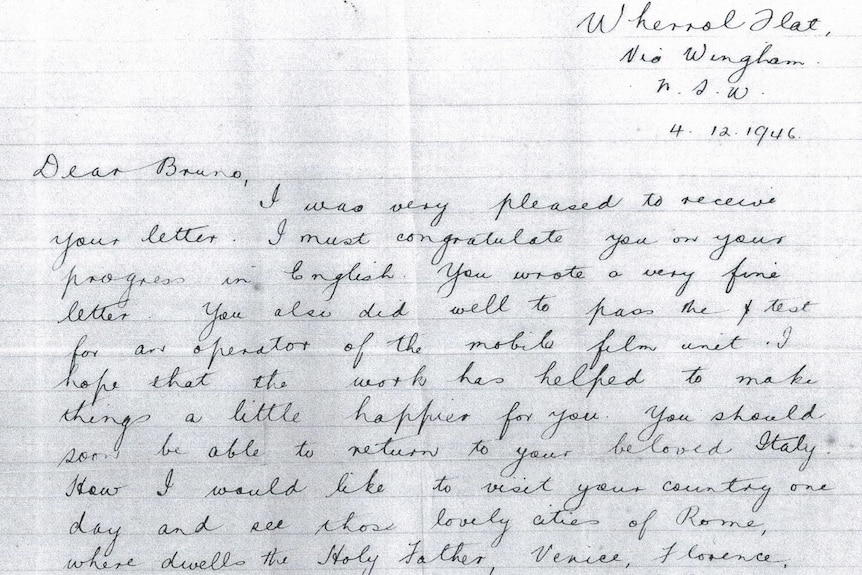 Wherrol Flat,
Via Wingham.
N. S. W.
4. 12. 1946.
Dear Bruno,
I was very pleased to receive
your letter. I must congratulate you on your
progress in English. You wrote a very fine
letter. You also did well to pass the test
for an operator of the mobile film unit. I
hope that the work has helped to make
things a little happier for you. You should
soon be able to return to your beloved Italy.
How I would like to visit your country one
day and see those lovely cities of Rome,
where dwells the Holy Father, Venice, Florence,